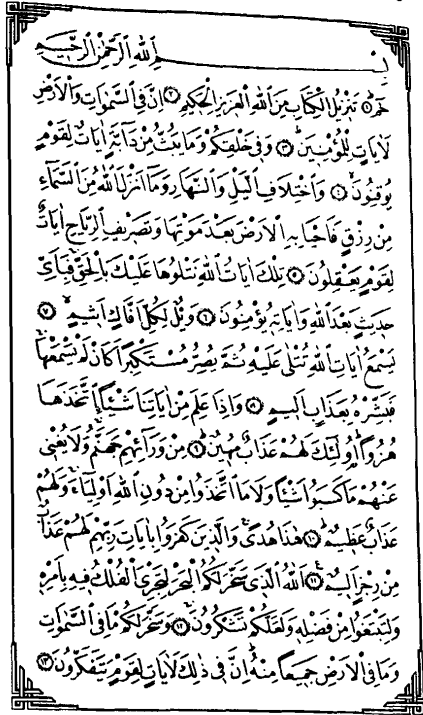 بسم الله الرحمن الرحيم
حم ﴿١﴾ تنزيل الكتاب من الله العزيز الحكيم ﴿٢﴾ ان في السموات والارض
لايات للمؤمنين ﴿٣﴾ وفي خلقكم وما يبث من دابة ايات لقوم
يوقنون ﴿٤﴾ واختلاف اليل والنهار وما انزل الله من السماء
من رزق فاحيا به الارض بعد موتها وتصريف الرياح ايات
لقوم يعقلون ﴿٥﴾ تلك ايات الله نتلوها عليك بالحق فباي
حديث بعد الله واياته يؤمنون ﴿٦﴾ ويل لكل افاك اثيم ﴿٧﴾
يسمع ايات الله تتلى عليه ثم يصر مستكبرا كان لم يسمعها
فبشره بعذاب اليم ﴿٨﴾ واذا علم من اياتنا شيئا اتخذها
هزوا اولئك لهم عذاب مهين ﴿٩﴾ من ورائهم جهنم ولا يغني
عنهم ما كسبوا شيئا ولا ما اتخذوا من دون الله اولياء ولهم
عذاب عظيم ﴿١٠﴾ هذا هدى والذين كفروا بايات ربهم لهم عذاب
من رجز اليم ﴿١١﴾ الله الذي سخر لكم البحر لتجري الفلك فيه بامره
ولتبتغوا من فضله ولعلكم تشكرون ﴿١٢﴾ وسخر لكم ما في السموات
وما في الارض جميعا منه ان في ذلك لايات لقوم يتفكرون ﴿١٣﴾